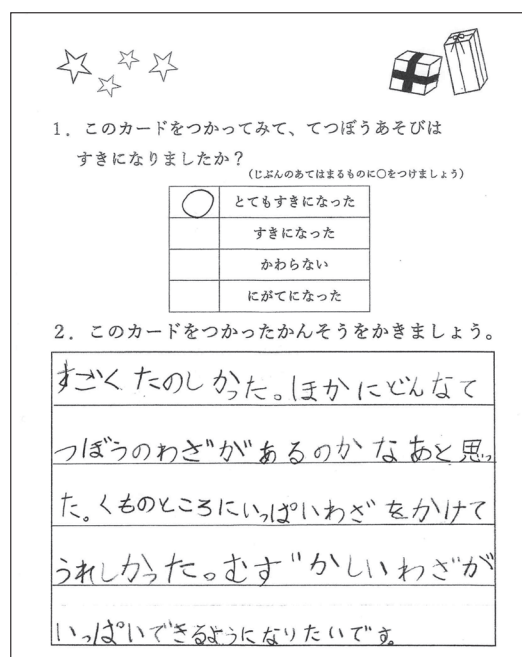 1．このカードをつかってみて、てつぼうあそびは
すきになりましたか？
（じぶんのあてはまるものに○をつけましょう）
○ とてもすきになった
すきになった
かわらない
にがてになった
2．このカードをつかったかんそうをかきましょう。
すごくたのしかった。ほかにどんなて
つぼうのわざがあるのかなあと思っ
た。くものところにいっぱいわざをかけて
うれしかった。むずかしいわざが
いっぱいできるようになりたいです。